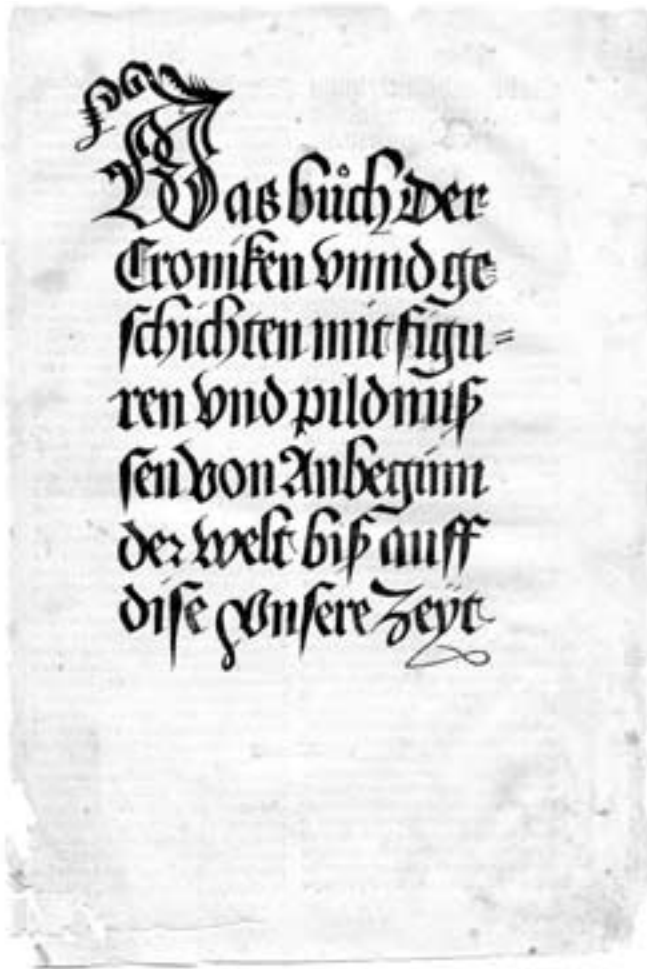 Das bůch Der
Croniken vnnd ge-
schichten mit figu=
ren vnd pildnuß
sen von Anbeginn
der welt biß auff
dise vnsere Zeyt